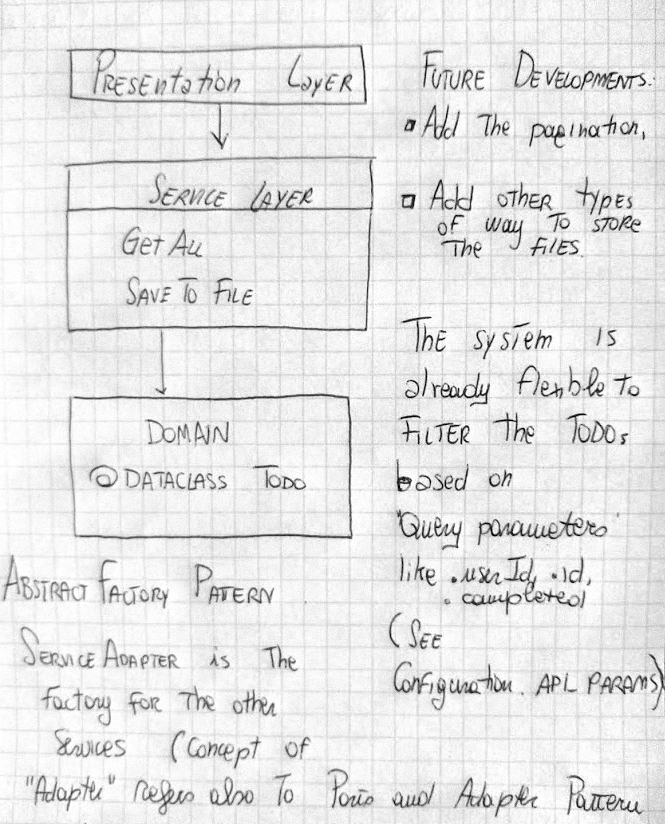 PRESENTATION LAYER
SERVICE LAYER
Get All
SAVE TO FILE
DOMAIN
@DATACLASS TODO
FUTURE DEVELOPMENTS:
Add The pagination,
Add OTHER TYPES
OF way TO STORE
The FILES.
THE SYSTEM IS
already flexible to
FILTER the TODOs
based on
"Query parameters"
like .userId, .id,
. completed
(SEE
Configuration. API_PARAMS)
ABSTRACT FACTORY PATERN
SERVICE ADAPTER is The
factory for The other
Services (Concept of
"Adapter" Refers also To Ports and Adapter Pattern